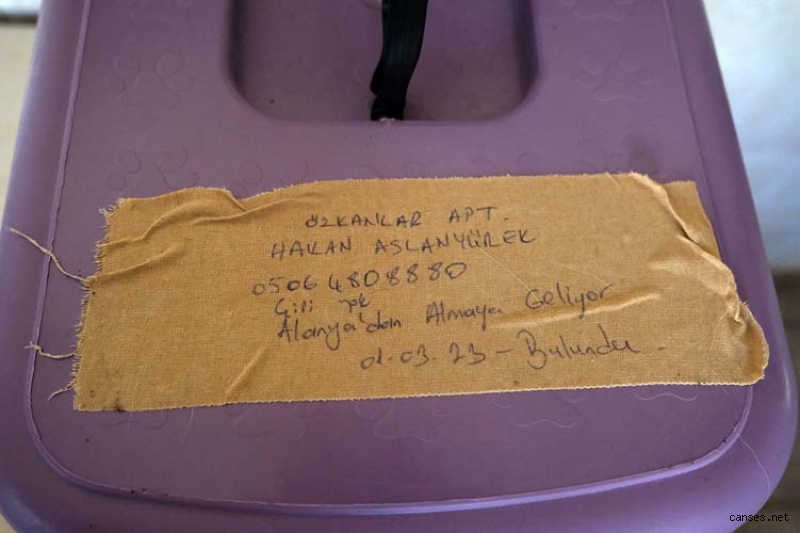 ÖZKANLAR APT.
HAKAN ASLANYÜREK
05064808880
Çipi yok
Alanya'dan Almaya Geliyor
01.03.23 - Bulundu.
canses.net